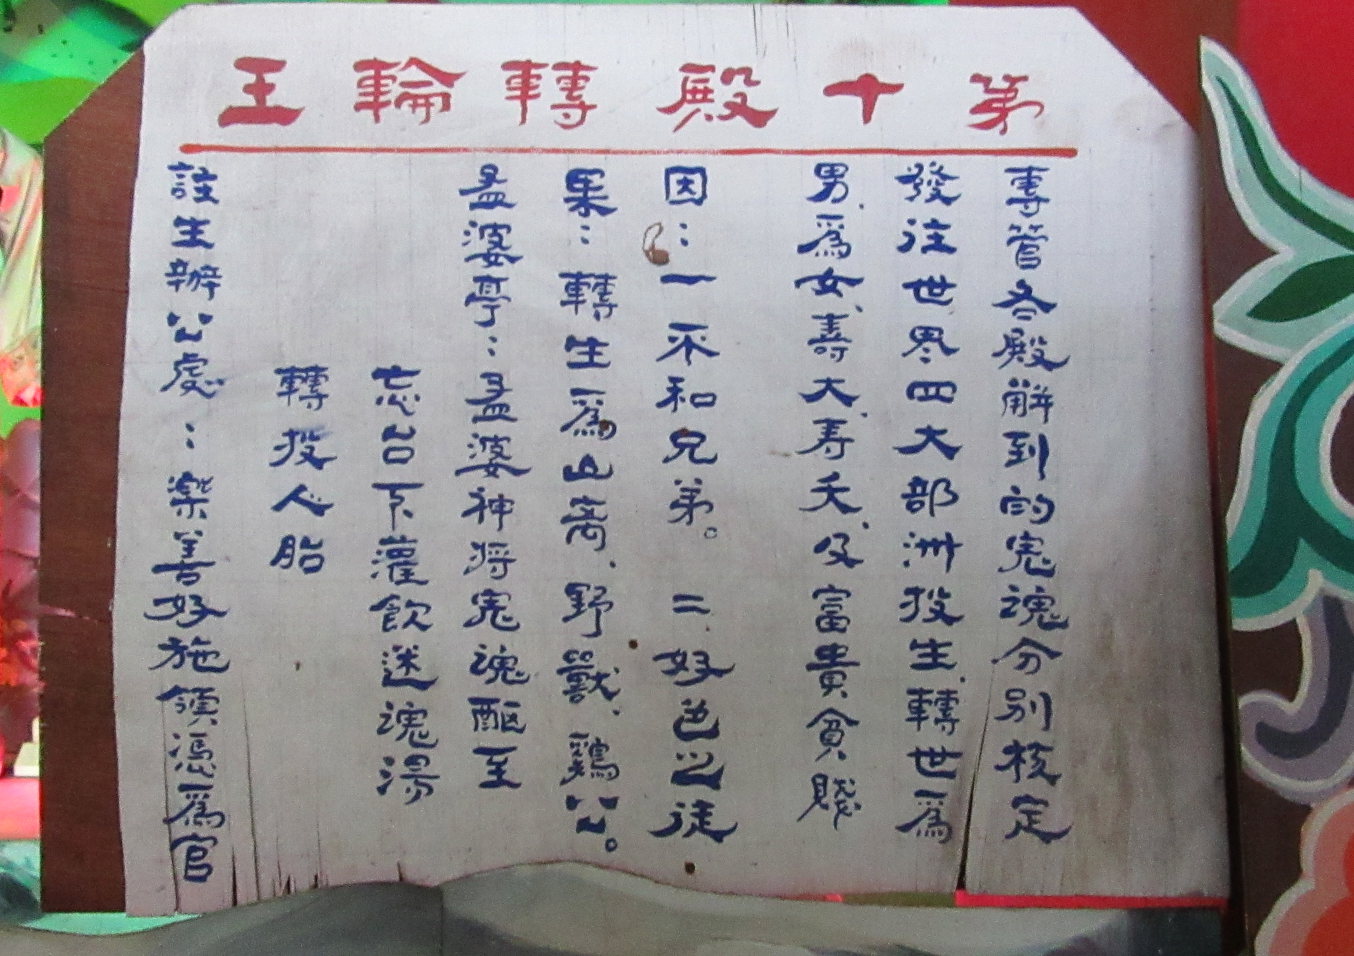 第十殿轉輪王
專管各殿解到的鬼魂分別核定
發往世界四大部洲投生、轉世為
男、為女、壽大、寿夭、及富貴貧賤
因：一不和兄弟。二好色之徒
果：轉生為山禽、野獸、鷄公。
孟婆亭：孟婆神将鬼魂驅至
忘台下灌飲迷魂湯
轉投人胎
註生辦公處：樂善好施領憑為官